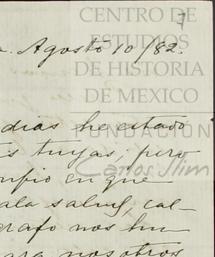 CENTRO DE
ESTUDIOS
DE HISTORIA
DE MEXICO
FUNDACIÓN
Carlos Slim
a. Agosto 10/82.
dias he estado
s tuyas; pero
nfio en que
ala salud, cal-
grafo nos hu
ara nosotros